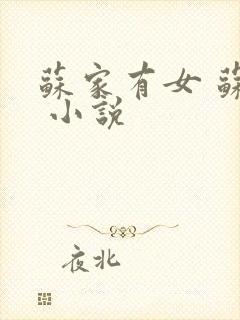 蘇家有女 蘇
小說
夜北